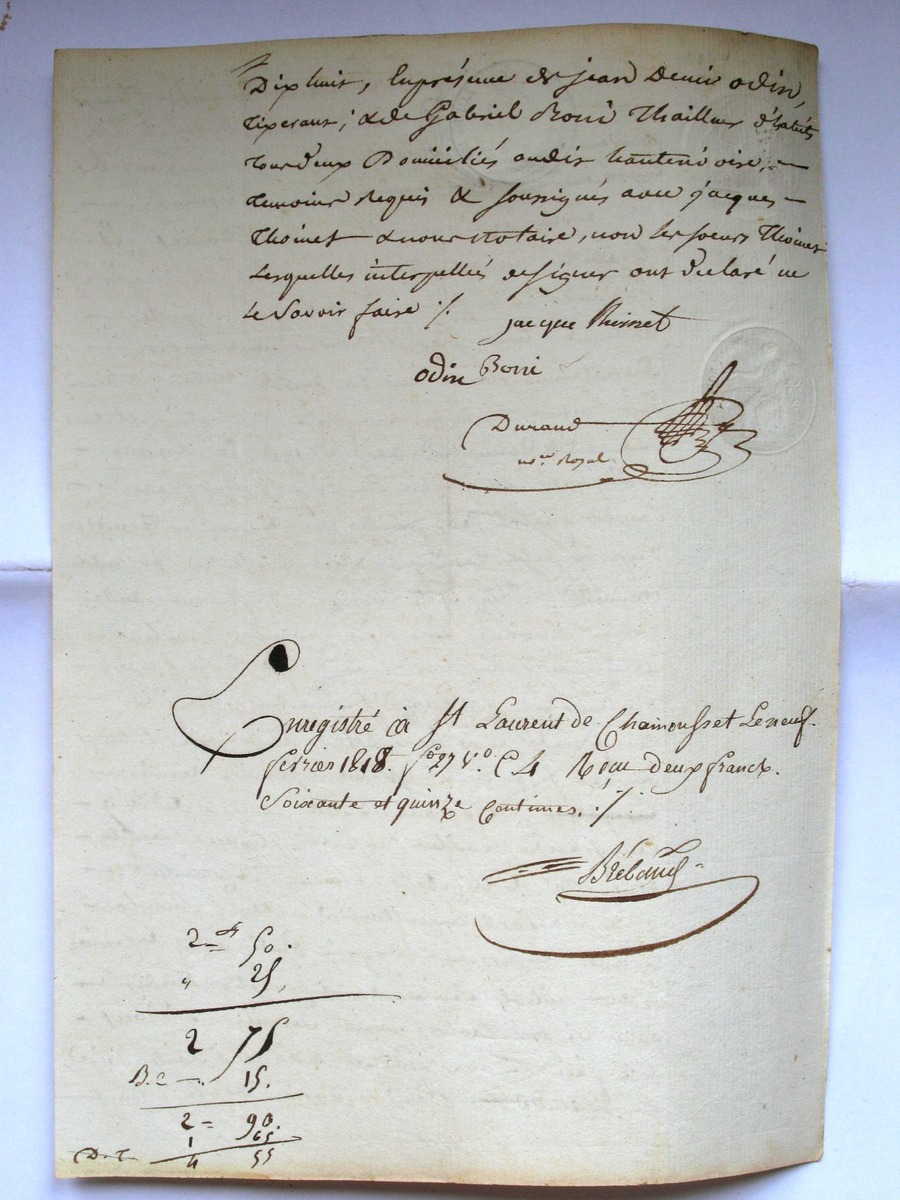 Dixhuit, Enprésence de jean Denis odin,
Tixerant; & de Gabriel Boni Thailleur d'habits
tous deux Domiciliés audit hauterivoire,
Temoins Requis & soussignés avec jacques
Thoinet & nous Notaire, non les soeurs Thoinet
Lesquelles interpellées designer ont declaré ne
Le savoir faire ./.
jacque Thoinet
odin Boni
Durand
no.re Royal
Enregistré à St Laurent de Chamousset Le neuf
fevrier 1818. fo 27 vo. C. 4 Reçu deux francs.
Soixante et quinze Centimes. ./.
Brébaud
2 f 50.
" 25,
2 75
15.
2 = 90.
1 65
4 55